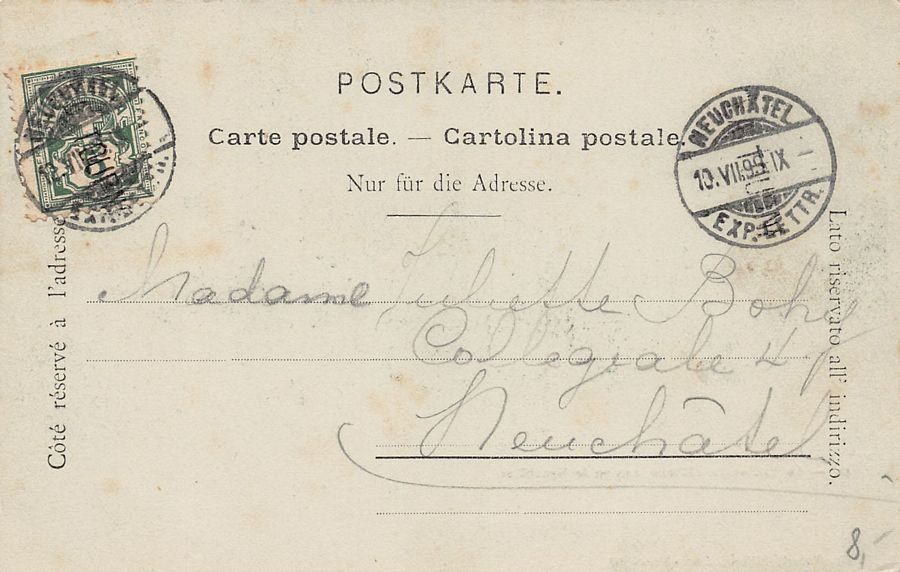 POSTKARTE.
Carte postale. — Cartolina postale.
Nur für die Adresse.
NEUCHÂTEL
10.VII.99. IX
EXP. LETTR.
Côté réservé à l'adresse
Lato riservato all' indirizzo.
Madame Juliette Bohy
Collegiale 4
Neuchâtel
8,-